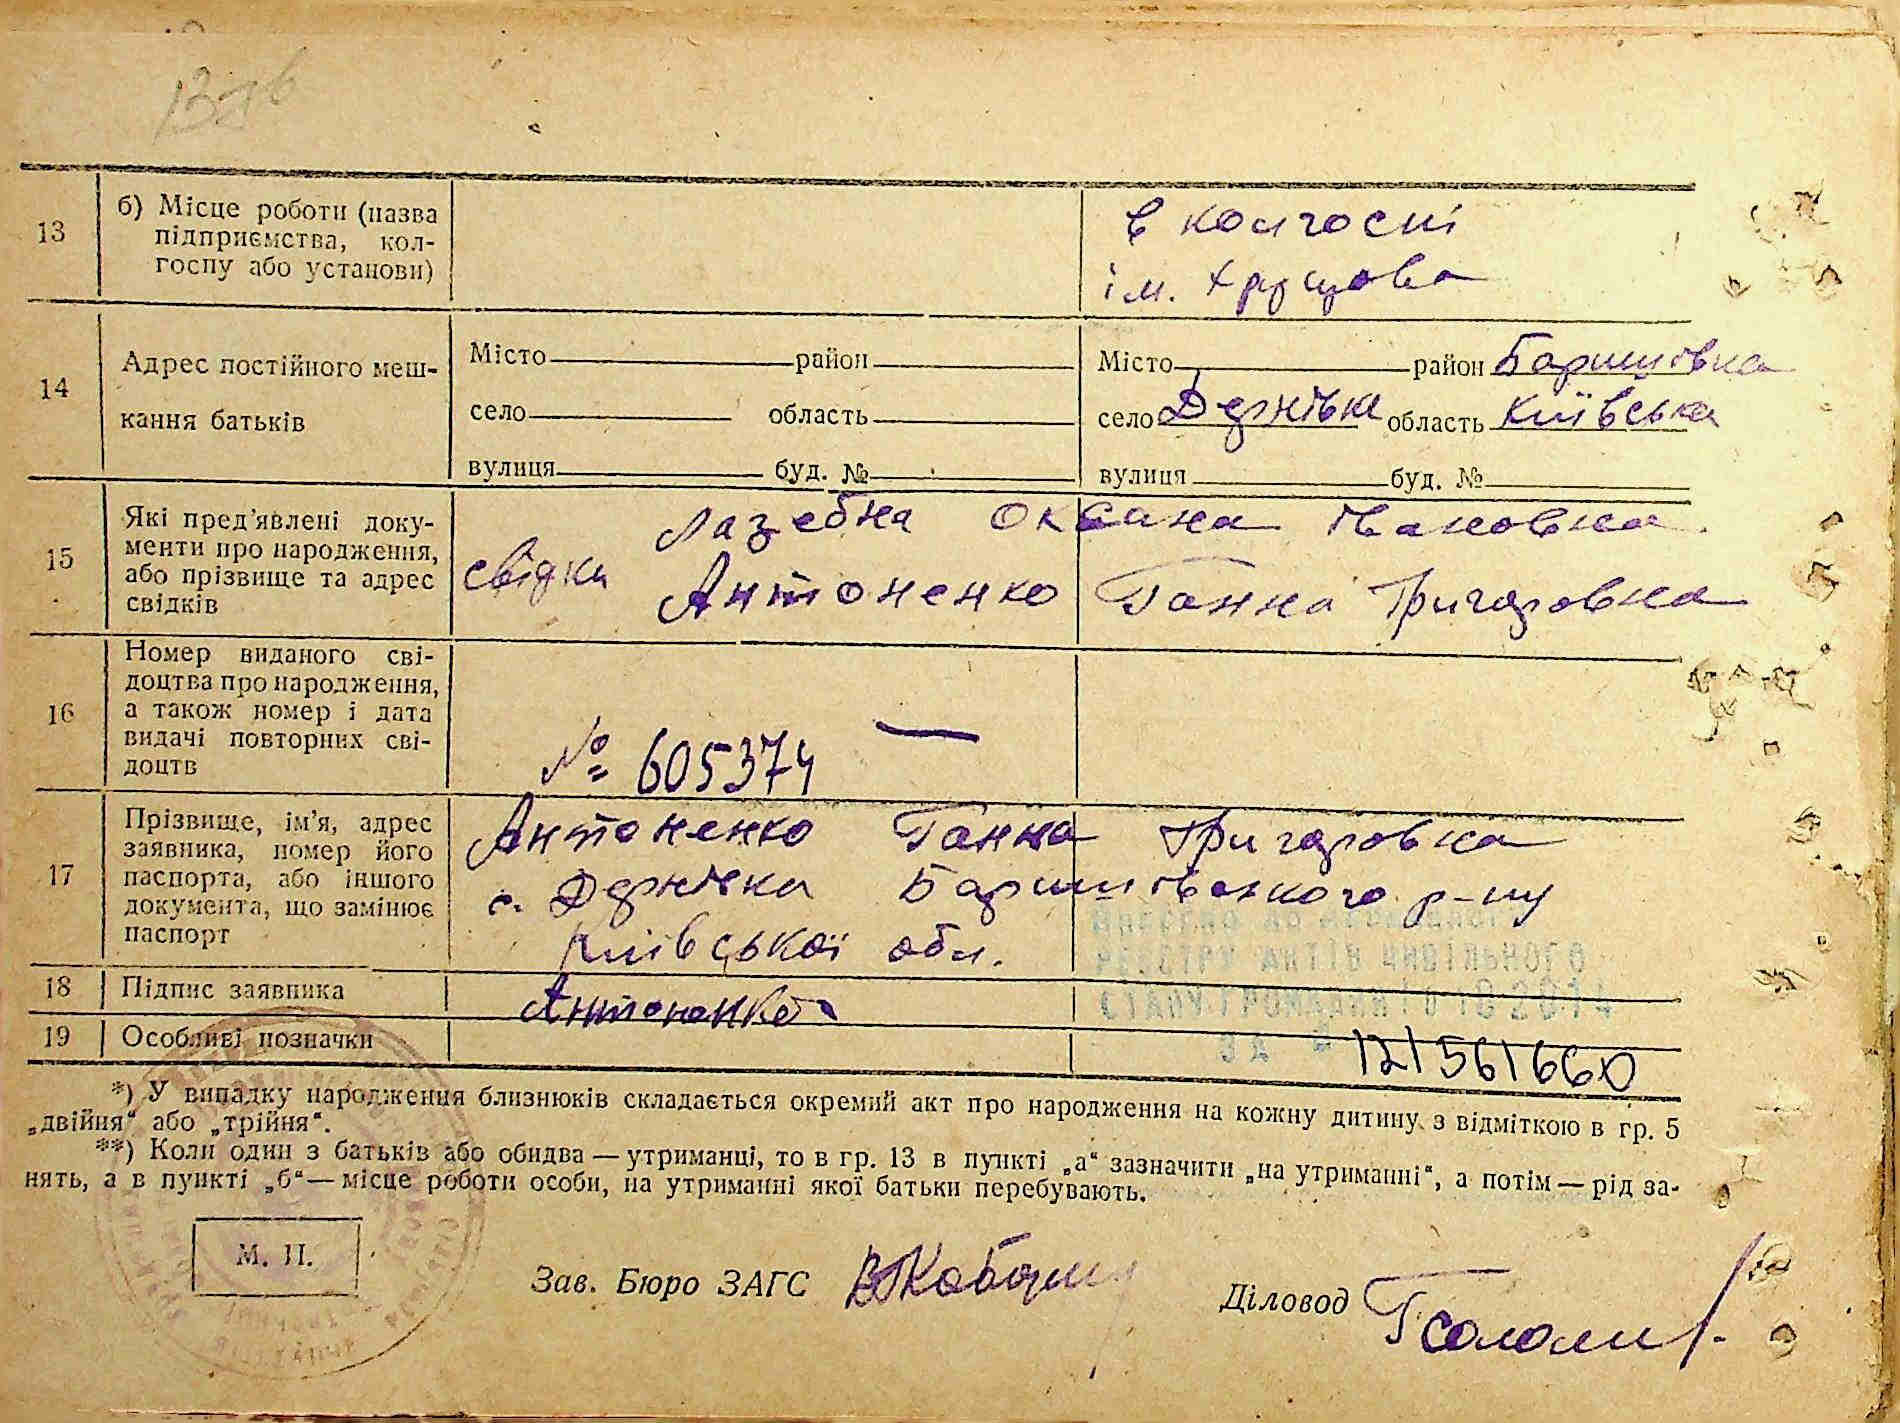 13 б) Місце роботи (назва підприємства, кол-
госпу або установи)
в колгоспі
ім. Хрущова
14 Адрес постійного меш-
кання батьків
Місто район
село область
вулиця буд. №
Місто район Баришівка
село Дернівка область Київська
вулиця буд. №
15 Які пред'явлені доку-
менти про народження,
або прізвище та адрес
свідків
Лазебна Оксана Івановна
свідки Антоненко Ганна Григоровна
16 Номер виданого сві-
доцтва про народження,
а також номер і дата
видачі повторних сві-
доцтв
№ 605374 —
17 Прізвище, ім'я, адрес
заявника, номер його
паспорта, або іншого
документа, що замінює
паспорт
Антоненко Ганна Григоровна
с. Дернівка Баришівського р-ну
Київської обл.
РЕЄСТРУ АКТІВ ЦИВІЛЬНОГО
СТАНУ ГРОМАДЯН 10 2014
за №
121561660
18 Підпис заявника
Антоненко
19 Особливі позначки
*) У випадку народження близнюків складається окремий акт про народження на кожну дитину з відміткою в гр. 5
„двійня“ або „трійня“.
**) Коли один з батьків або обидва — утриманці, то в гр. 13 в пункті „а“ зазначити „на утриманні“, а потім — рід за-
нять, а в пункті „б“ — місце роботи особи, на утриманні якої батьки перебувають.
М. П.
Зав. Бюро ЗАГС
Діловод